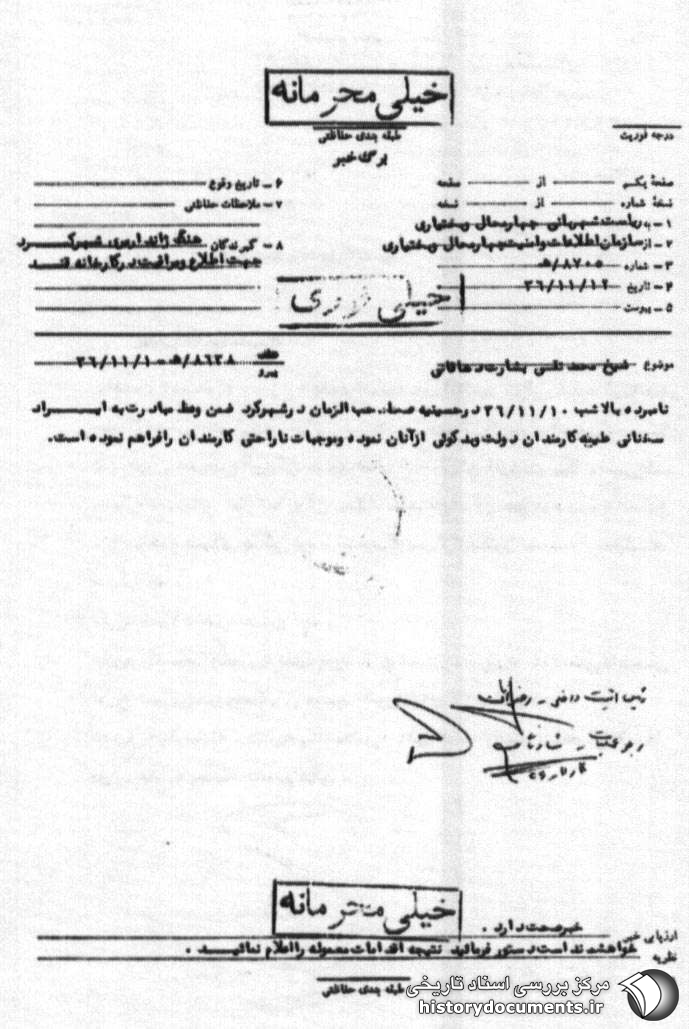 خیلی محرمانه
طبقه بندی حفاظتی
درجه فوریت
برگ خبر
صفحهٔ یکم از صفحه
نسخهٔ شماره از نسخه
۱ - به ریاست شهربانی چهارمحال و بختیاری
۲ - از سازمان اطلاعات و امنیت چهارمحال و بختیاری
۳ - شماره ۵/۸۷۰۵ ه
۴ - تاریخ ۳۶/۱۱/۱۲
۵ - پیوست
۶ - تاریخ وقوع
۷ - ملاحظات حفاظتی
۸ - گیرندگان هنگ ژاندارمری شهرکرد
جهت اطلاع و مراقبت در کارخانه قند
خیلی فوری
موضوع شیخ محمد تقی بشارت دهاقانی
عطف
پیرو
۵/۸۶۳۸ ه - ۳۶/۱۱/۱
نامبرده بالا شب ۳۶/۱۱/۱۰ در حسینیه صاحب الزمان در شهرکرد ضمن وعظ مبادرت به ایراد
سخنانی علیه کارمندان دولت و بدگوئی از آنان نموده و موجبات ناراحتی کارمندان را فراهم نموده است.
خیلی محرمانه
ارزیابی خبر خبر صحت دارد .
نظریه خواهشمند است دستور فرمائید نتیجه اقدامات معموله را اعلام نمائید .
طبقه بندی حفاظتی
مرکز بررسی اسناد تاریخی
historydocuments.ir